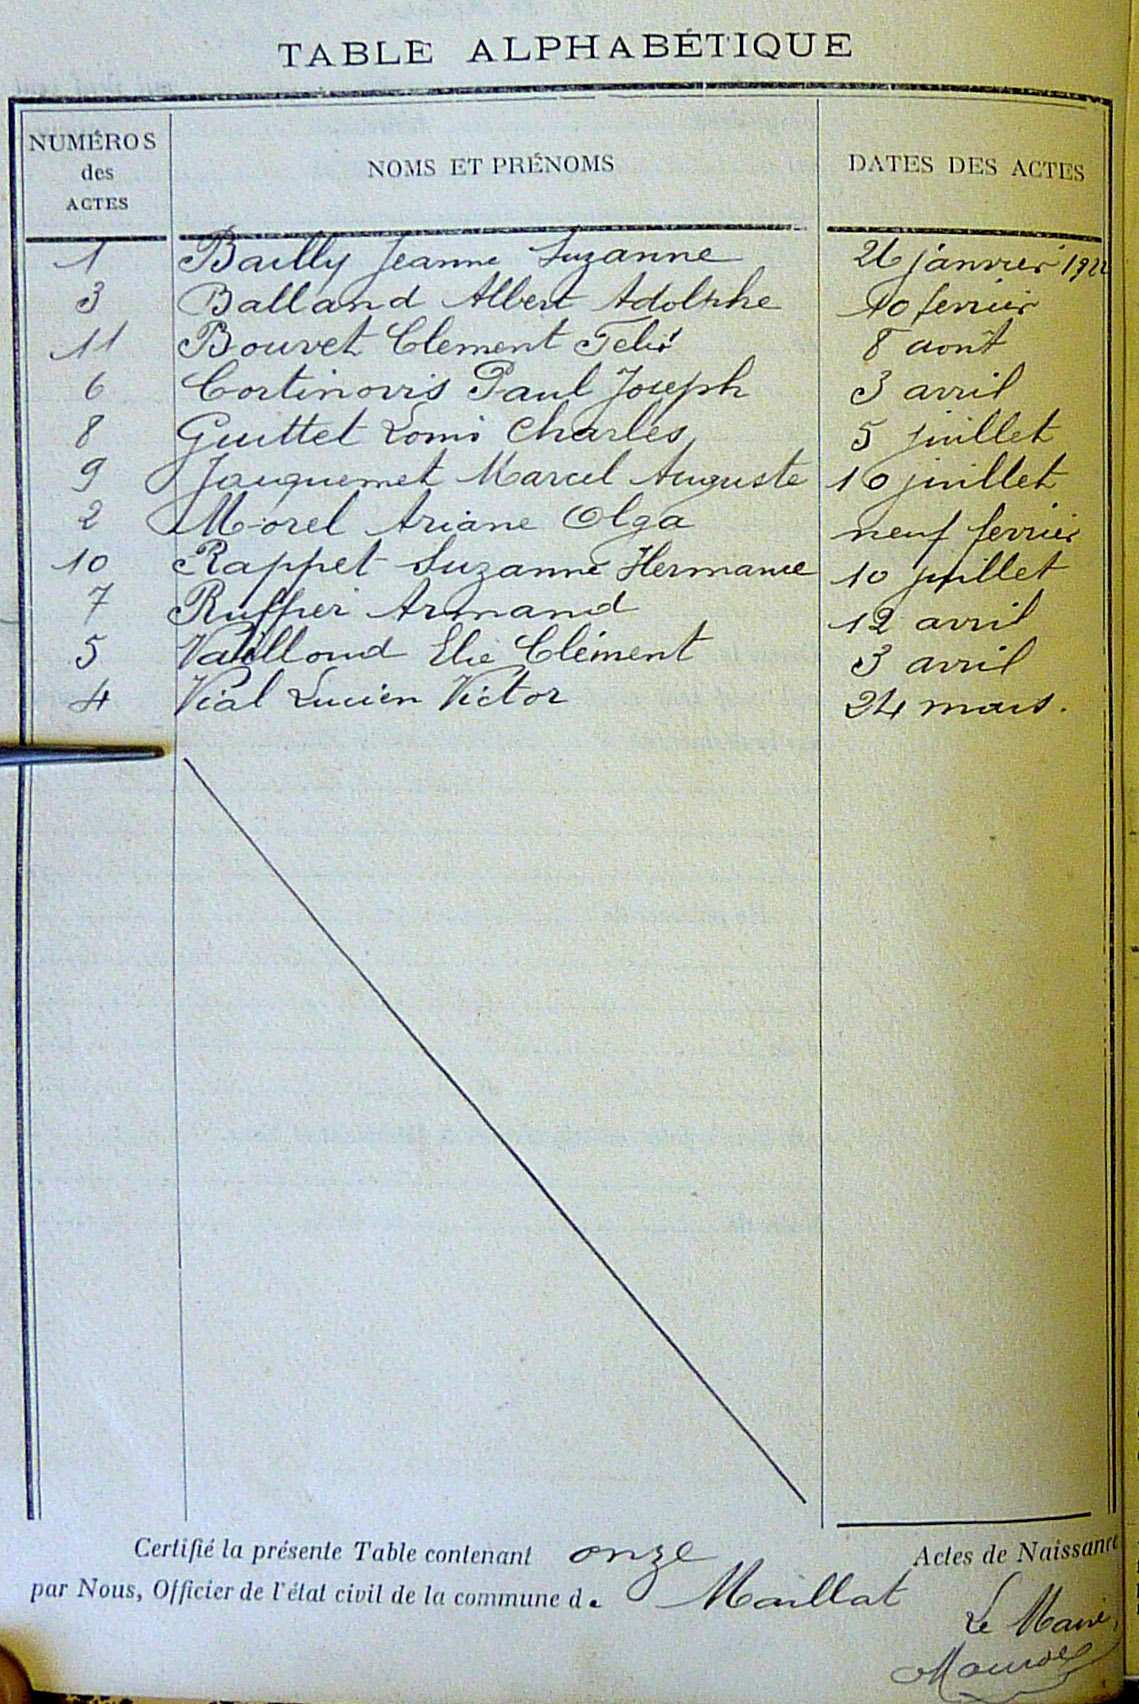 TABLE ALPHABÉTIQUE
NUMÉROS des ACTES NOMS ET PRÉNOMS DATES DES ACTES
1 Bailly Jeanne Suzanne 26 janvier 1922
3 Balland Albert Adolphe 10 fevrier
11 Bouvet Clement Felix 8 août
6 Cortinovis Paul Joseph 3 avril
8 Guittet Louis Charles 5 juillet
9 Jacquemet Marcel Auguste 10 juillet
2 Morel Ariane Olga neuf fevrier
10 Rappet Suzanne Hermance 10 juillet
7 Ruffier Armand 12 avril
5 Vailloud Elie Clément 3 avril
4 Vial Lucien Victor 24 mars.
Certifié la présente Table contenant onze Actes de Naissance
par Nous, Officier de l'état civil de la commune d. Maillat
Le Maire,